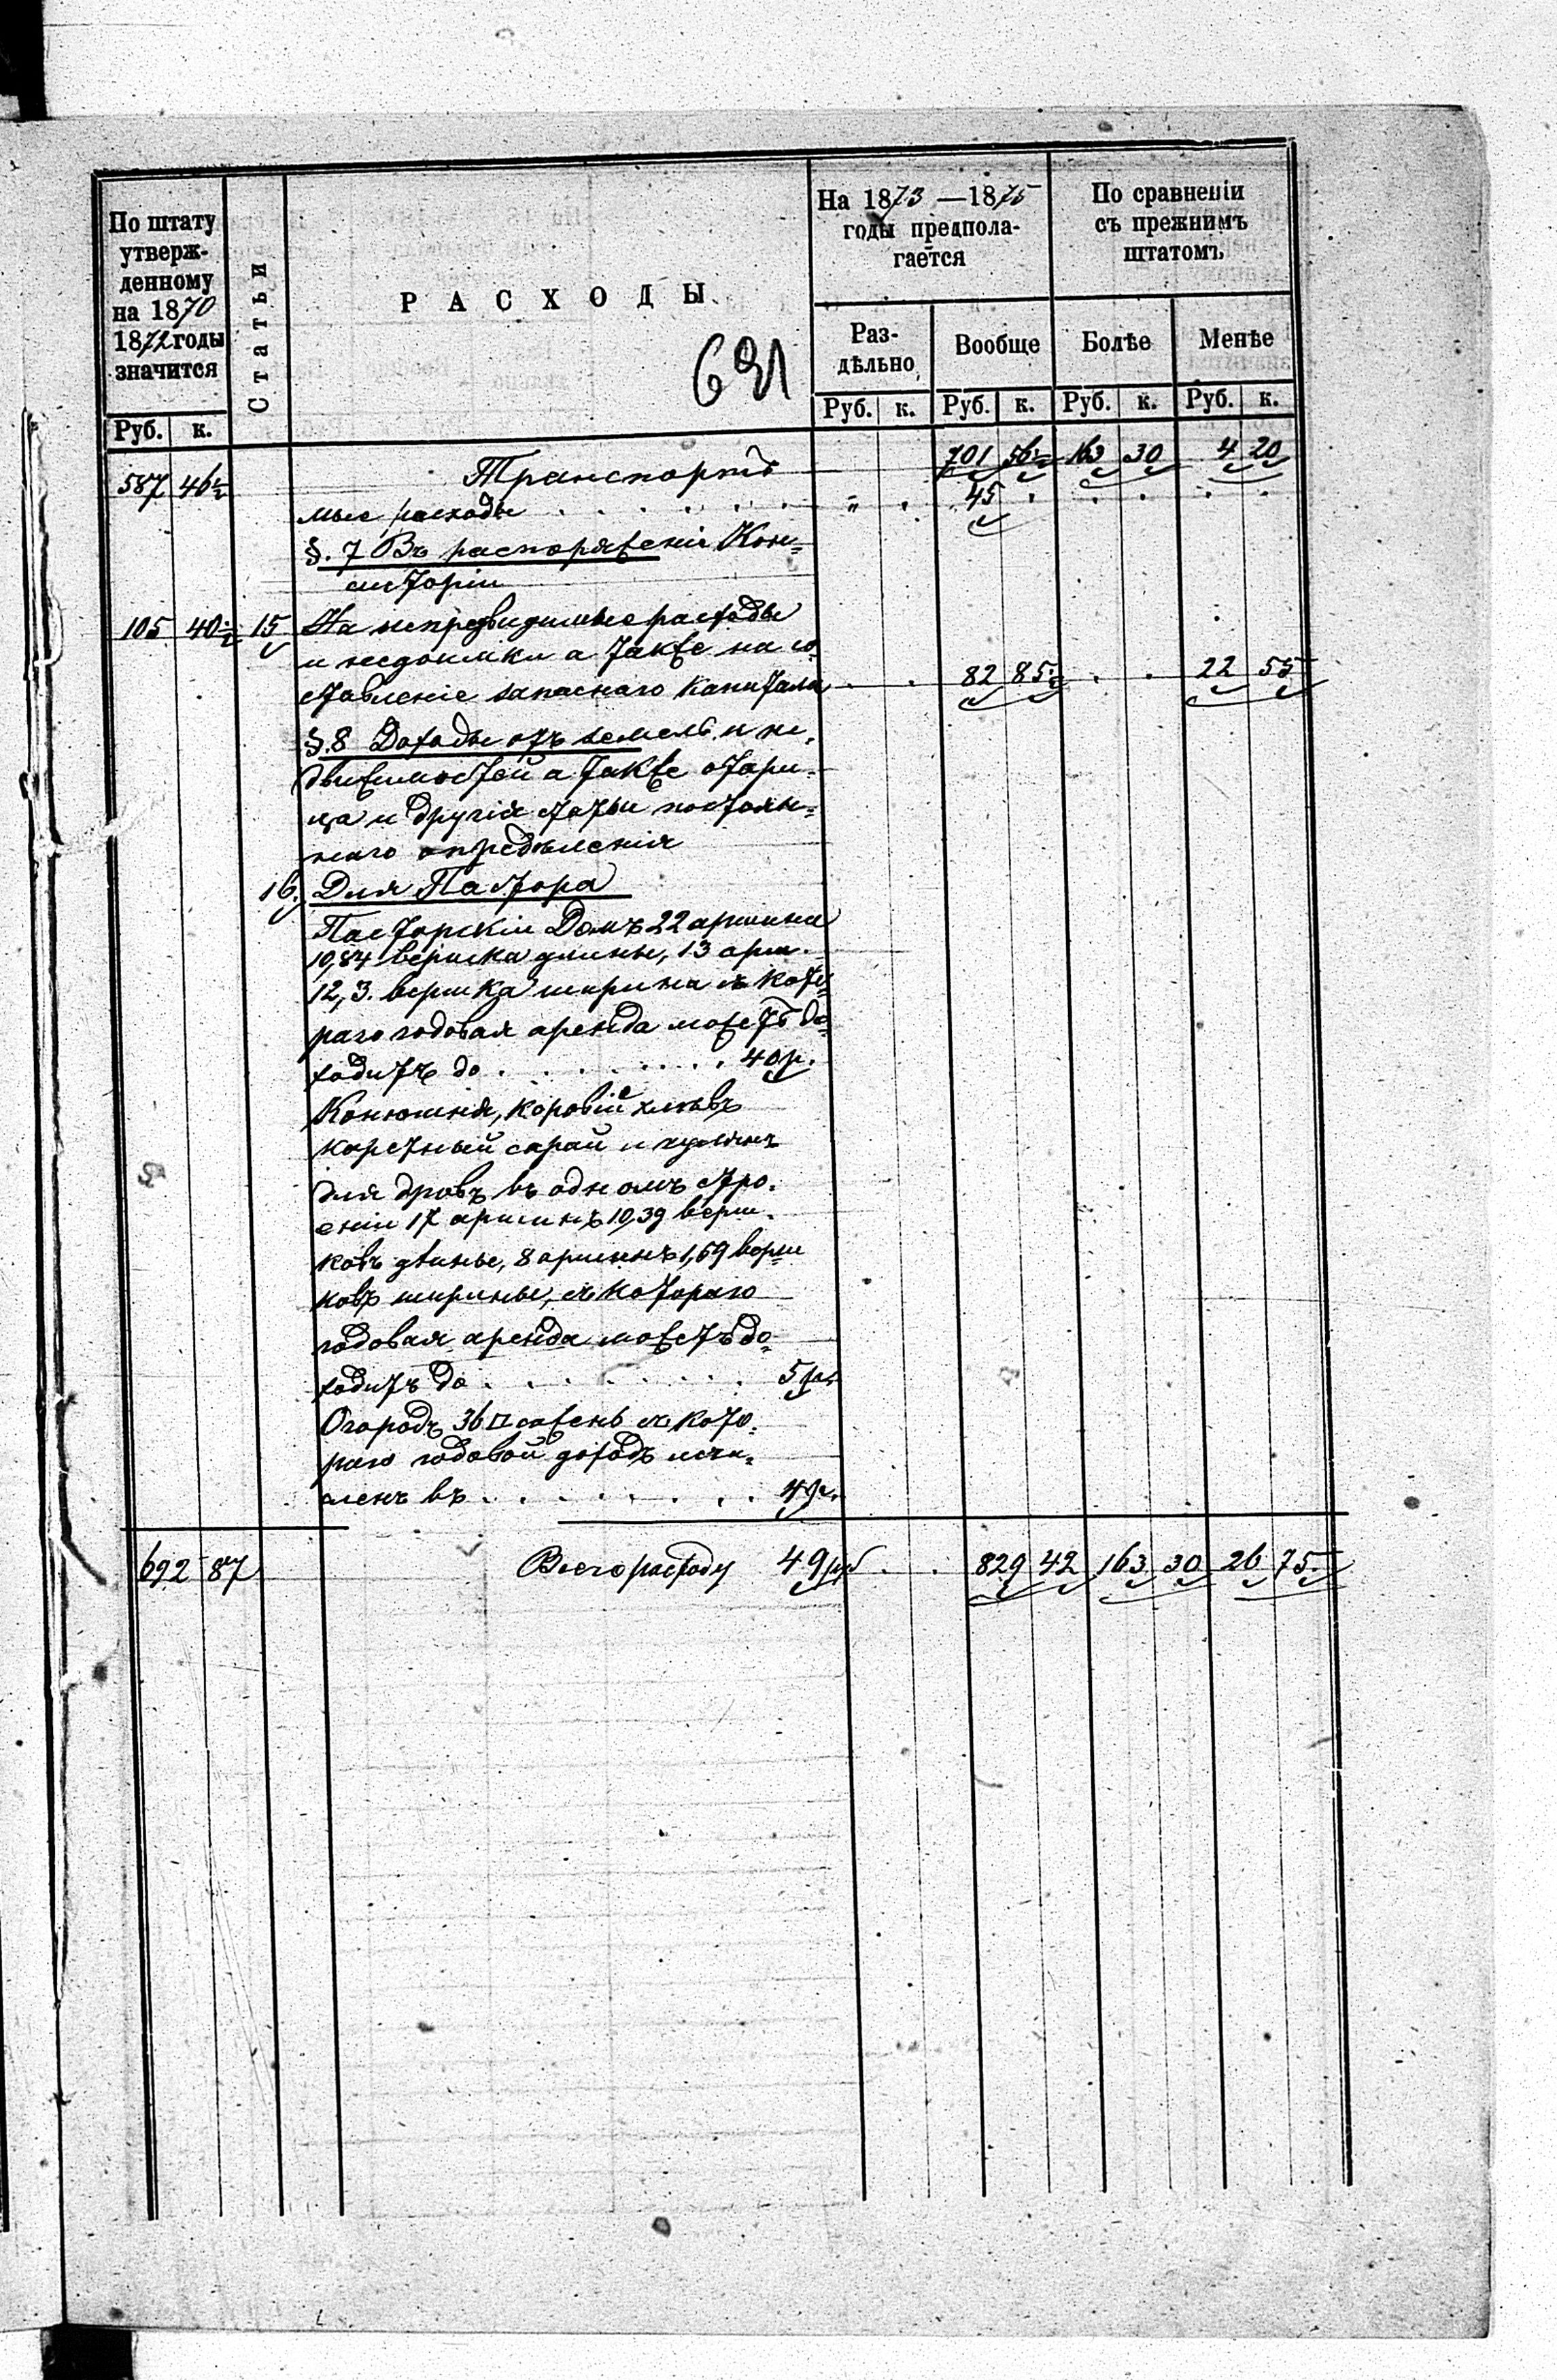 По штату утверж-денному на 1870 1872 годы значится
Статьи
РАСХОДЫ.
На 1873 —1875 годы предпола-гается
По сравненіи съ прежнимъ штатомъ.
631
Раз-дѣльно
Вообще
Болѣе
Менѣе
Руб. к. Руб. к. Руб. к. Руб. к. Руб. к.
587 46½ Транспортъ 701 56½ 163 30 4 20
мые расходы . . . . . . " . 45 . . . . .
§. 7 Въ распоряженіи Кон=
систоріи
105 40½ 15 На непредвидимые расходы
и недоимки а также на со=
ставленіе запаснаго капитала . . 82 85½ . . 22 55
§. 8 Доходы отъ земель и не=
движимостей а также
и другія статьи постоян=
наго опредѣленія
16. Для Пастора
Пасторскій Домъ 22 аршина
10,84 вершка длины, 13 арш.
12,3. вершка ширина съ кото=
раго годовая аренда можетъ до=
ходитъ до . . . . . . . . 40 р.
Конюшня, коровій хлѣвъ
каретный сарай и чуланъ
для дровъ въ одномъ стро=
еніи 17 аршинъ 10,39 верш=
ковъ длины, 8 аршинъ 1,69 верш=
ковъ ширины, съ котораго
годовая аренда можетъ до=
ходитъ до . . . . . . . . 5 р.
Огородъ 36 □ сажень съ кото=
раго годовой доходъ исчи=
сленъ въ . . . . . . . . 4 р.
692 87 Всего расходу 49 руб . . 829 42 163 30 26 75.